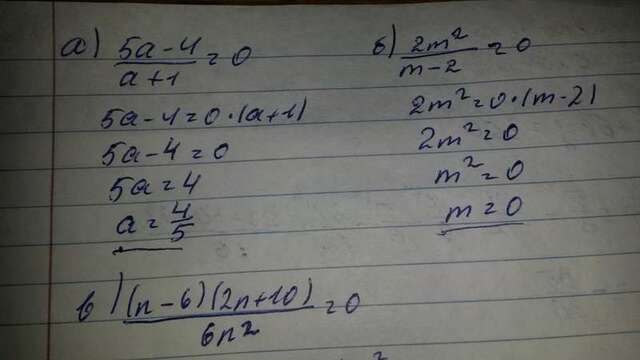 а) (5a-4)/(a+1) = 0
5a-4=0·(a+1)
5a-4=0
5a=4
a=4/5
б) 2m²/(m-2) = 0
2m²=0·(m-2)
2m²=0
m²=0
m=0
в) (n-6)(2n+10)/6n² = 0